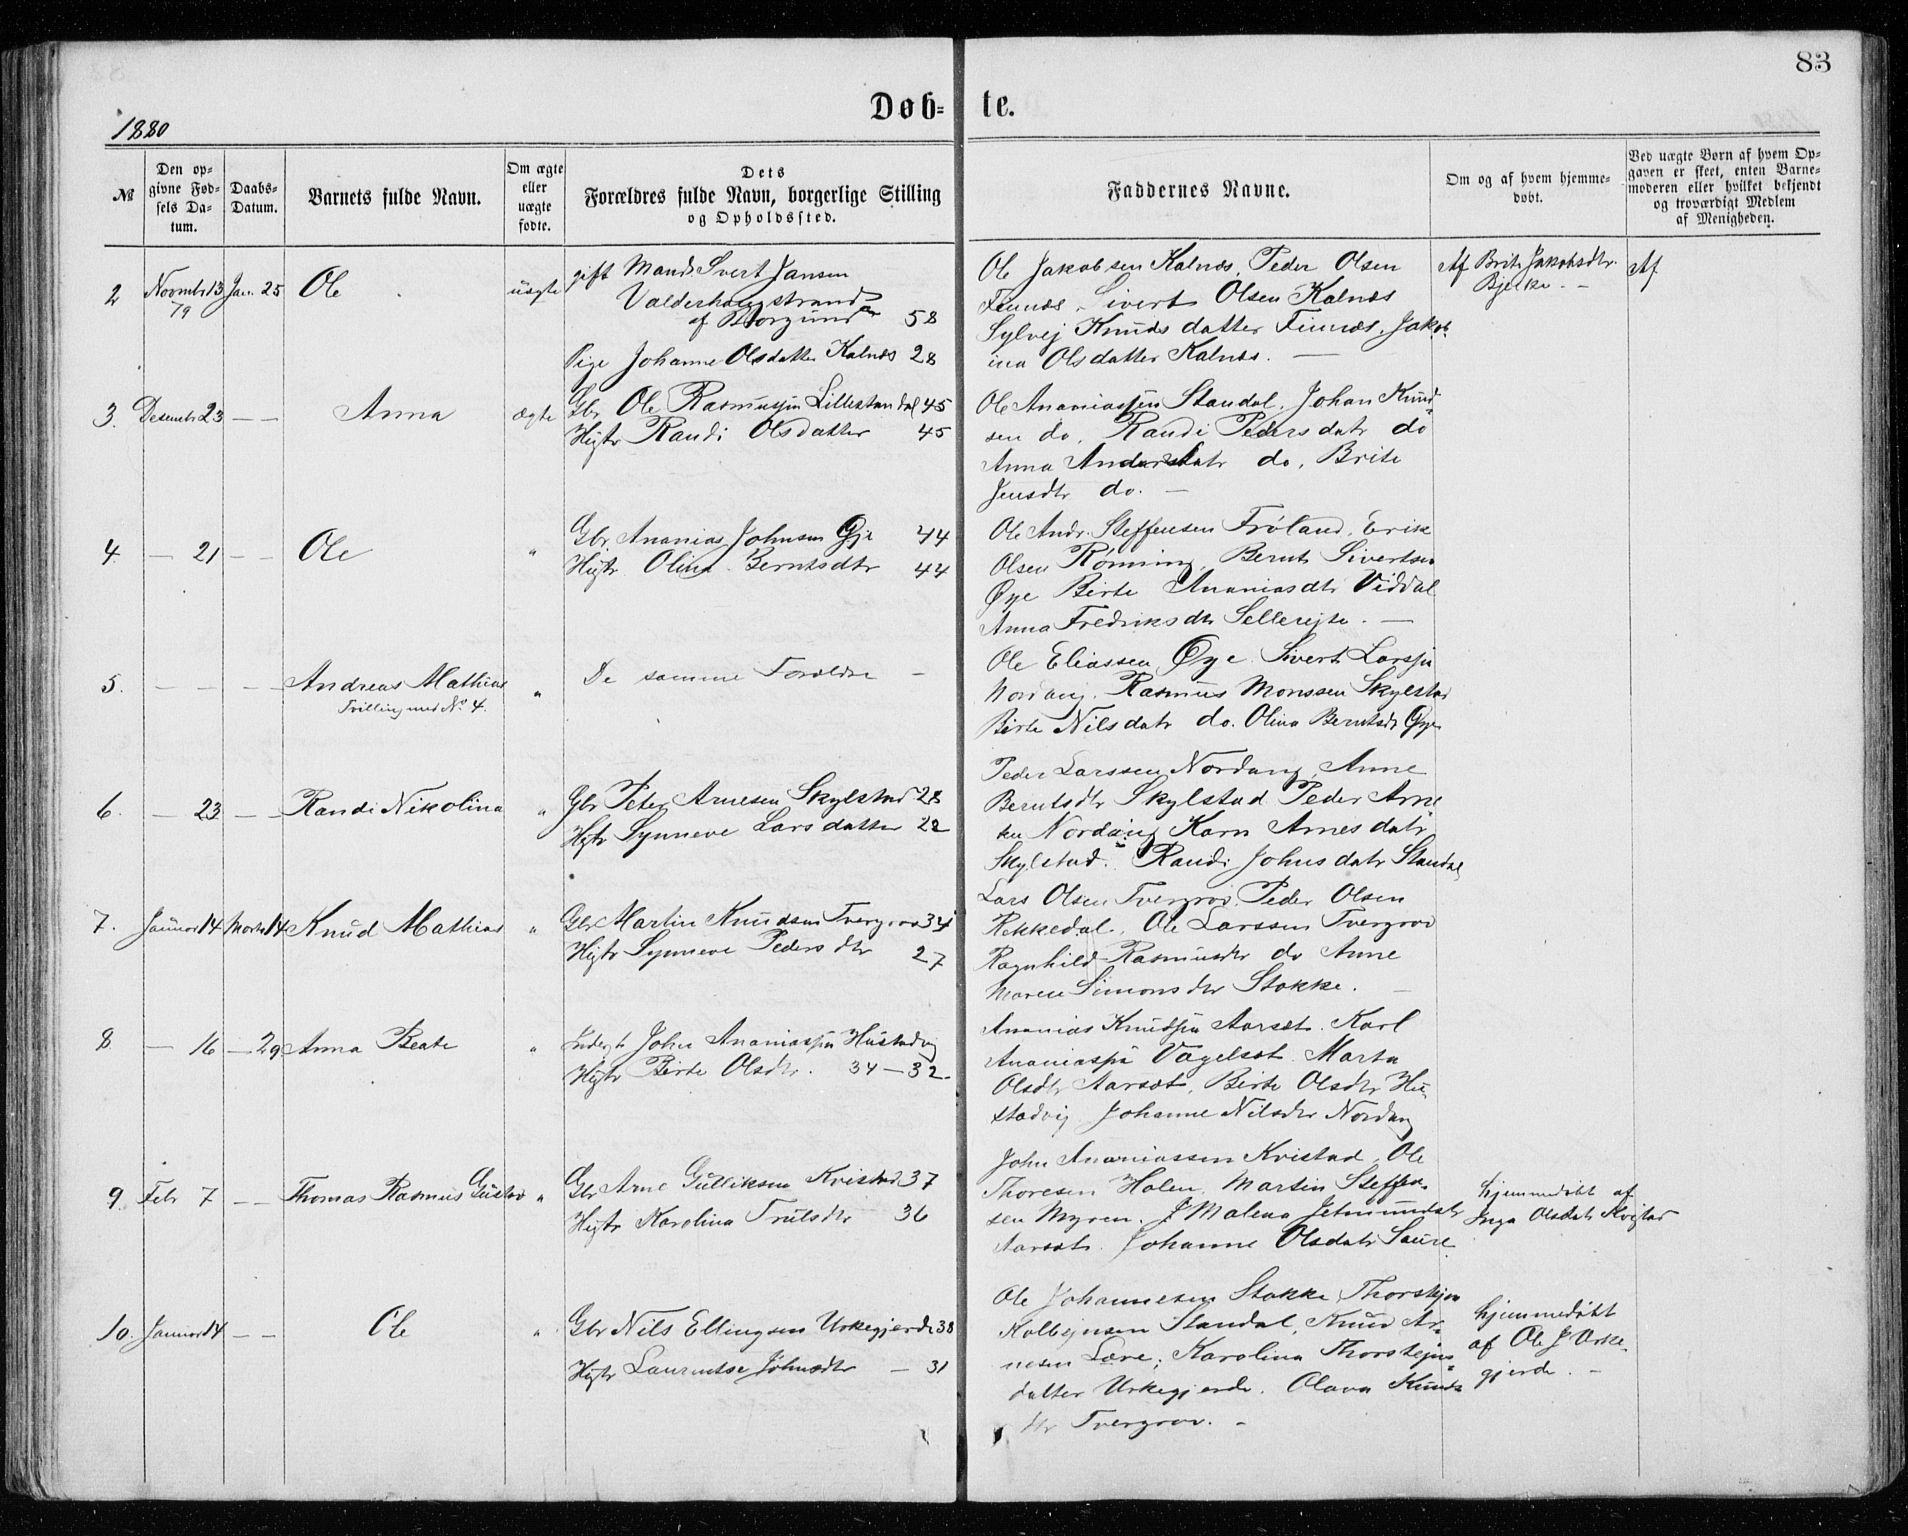 83
Døb-
te.
1880
№
Den op-
givne Fød-
sels Da-
tum.
Daabs-
Datum.
Barnets fulde Navn.
Om ægte
eller
uægte
fødte.
Dets
Forældres fulde Navn, borgerlige Stilling
og Opholdssted.
Faddernes Navne.
Om og af hvem hjemme-
døbt.
Ved uægte Børn af hvem Op-
gaven er skeet, enten Barne-
moderen eller hvilket bekjendt
og troværdigt Medlem
af Menigheden.
2 Novmbr 13 Jan. 25 Ole uægte
79
gift Mand Sivert Jansen
Valderhaugstrand
af Borgund 58
Pige Johanne Olsdatter Kalnæs 28
Ole Jakobsen Kalnæs, Peder Olsen
Finnæs, Sivert Olsen Kalnæs
Sylvej Knudsdatter Finnæs, Jakob-
ina Olsdatter Kalnæs. —
Af Brit. Jakobsdtr.
Bjerke. —
Af
3. Desembr 23 — — Anna ægte
Gbr. Ole Rasmussen Lillestandal 45
Hustr Randi Olsdatter 45
Ole Ananiassen Standal, Johan Knud-
sen do, Randi Pedersdatr do
Anna Andersdatr do, Brite
Jensdtr do. —
4. — 21 — — Ole "
Gbr. Ananias Johnsen Øje 44
Hustr Olina Berntsdtr 44
Ole Andr. Steffensen Frøland, Erik
Olsen Rønning, Bernt Sivertsen
Øye Birte Ananiasdtr Viddal
Anna Fredriksdtr Sellereite. —
5. — — — — Andreas Mathias "
Tvilling med No 4.
De samme Forældre —
Ole Eliassen Øye Sivert Larssen
Nordang. Rasmus Monssen Skylstad
Birte Nilsdatr do. Olina Berntsdr Øye
6. — 23 — — Randi Nikolina "
Gbr Peter Arnesen Skylstad 28
Hustr Synneve Larsdatter 22
Peder Larssen Nordang, Anne
Berntsdtr Skylstad Peder Arne-
sen Nordang Karn Arnesdatr
Skylstad. Randi Johnsdatr Standal
7. Januar 14 Marts 14 Knud Mathias "
Gbr Martin Knudsen Tvergrov 34
Hustr Synneve Pedersdtr 27
Lars Olsen Tvergrov. Peder Olsen
Rekkedal. Ole Larssen Tvergrov
Ragnhild Rasmusdtr do Anne
Maren Simonsdtr Stokke. —
8 — 16 — 29 Anna Beate "
Inderst John Ananiassen Hustadvig
Hustr Birte Olsdtr. 34 — 32
Ananias Knudsen Aarsæt. Karl
Ananiassen Vagelsæt. Marta
Olsdtr Aarsæt, Birte Olsdtr Hu-
stadvig Johanne Nilsdtr Nordang
9. Febr 7 — — Thomas Rasmus Gustav "
Gbr Arne Gulliksen Kvistad 37
Hustr Karolina Trulsdtr 36
John Ananiassen Kvistad, Ole
Thoresen Holen, Martin Steffen-
sen Myren. J Malena Jetmundsdtr
Aarsæt. Johanne Olsdatr Saure
hjemmedøbt af
Inga Olsdatr Kvistad
10. Januar 14 — — Ole "
Gbr Nils Ellingsen Urkegjerde 38
Hustr Laurentse Johnsdtr — 31
Ole Johannesen Stokke Thorstejn
Kolbejnsen Standal, Knud Ar-
nesen Løre; Karolina Thorstejns-
datter Urkegjerde. Olava Knuds-
dtr Tvergrov. —
hjemmedøbt
af Ole J Urke-
gjerde. —